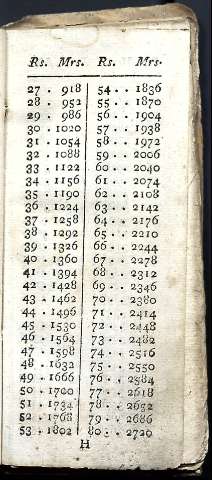 Rs. Mrs. Rs. Mrs.
27 . 918 54 . . 1836
28 . 952 55 . . 1870
29 . 986 56 . . 1904
30 . 1020 57 . . 1938
31 . 1054 58 . . 1972
32 . 1088 59 . . 2006
33 . 1122 60 . . 2040
34 . 1156 61 . . 2074
35 . 1190 62 . . 2108
36 . 1224 63 . . 2142
37 . 1258 64 . . 2176
38 . 1292 65 . . 2210
39 . 1326 66 . . 2244
40 . 1360 67 . . 2278
41 . 1394 68 . . 2312
42 . 1428 69 . . 2346
43 . 1462 70 . . 2380
44 . 1496 71 . . 2414
45 . 1530 72 . . 2448
46 . 1564 73 . . 2482
47 . 1598 74 . . 2516
48 . 1632 75 . . 2550
49 . 1666 76 . . 2584
50 . 1700 77 . . 2618
51 . 1734 78 . . 2652
52 . 1768 79 . . 2686
53 . 1802 80 . . 2720
H